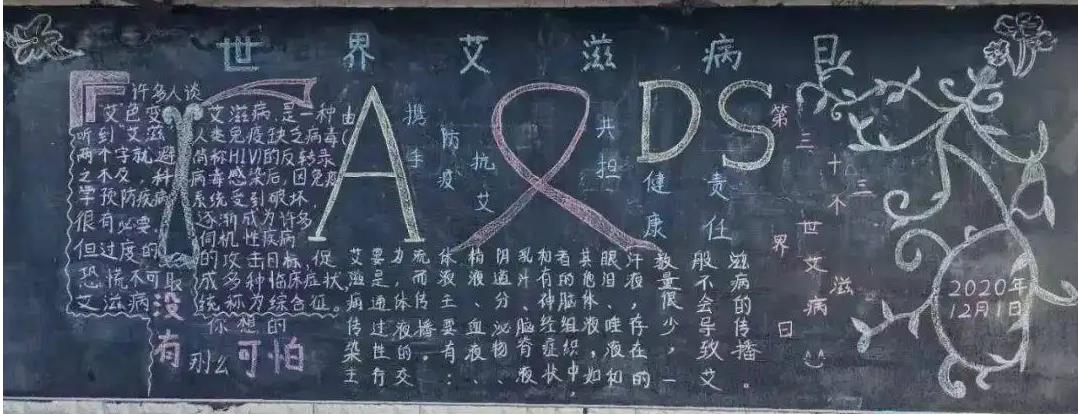 世界艾滋病日
许多人谈
艾色变,
听到"艾滋"
两个字就避
之不及,科
学预防疾病
很有必要,
但过度的
恐慌不可取
艾滋病
没有
你想的
那么可怕
艾滋病,是一种由
人类免疫缺乏病毒(
简称HIV)的反转录
病毒感染后,因免疫
系统受到破坏,
逐渐成为许多
伺机性疾病
的攻击目标,促
成多种临床症状,
统称为综合征。
A DS
携手防疫抗艾
共担健康责任
艾滋病传染主
要是通过性行
为,体液的交
流而传播。
体液主要有:
精液、血液、
阴道分泌物、
乳汁、脑脊液
和有神经症状
者的脑组织中,
其他体液,如
眼泪、唾液和
汗液,存在的
数量很少,一
般不会导致艾
滋病的传播。
第三十三个世界艾滋病日
2020年
12月1日